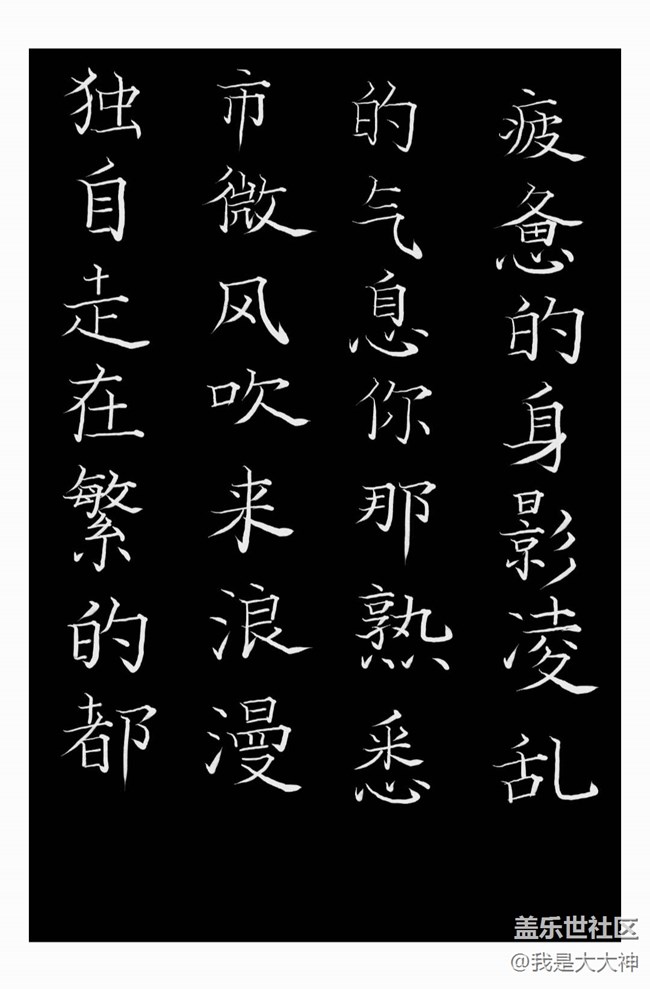 独自走在繁的都
市微风吹来浪漫
的气息你那熟悉
疲惫的身影凌乱
盖乐世社区
@我是大大神